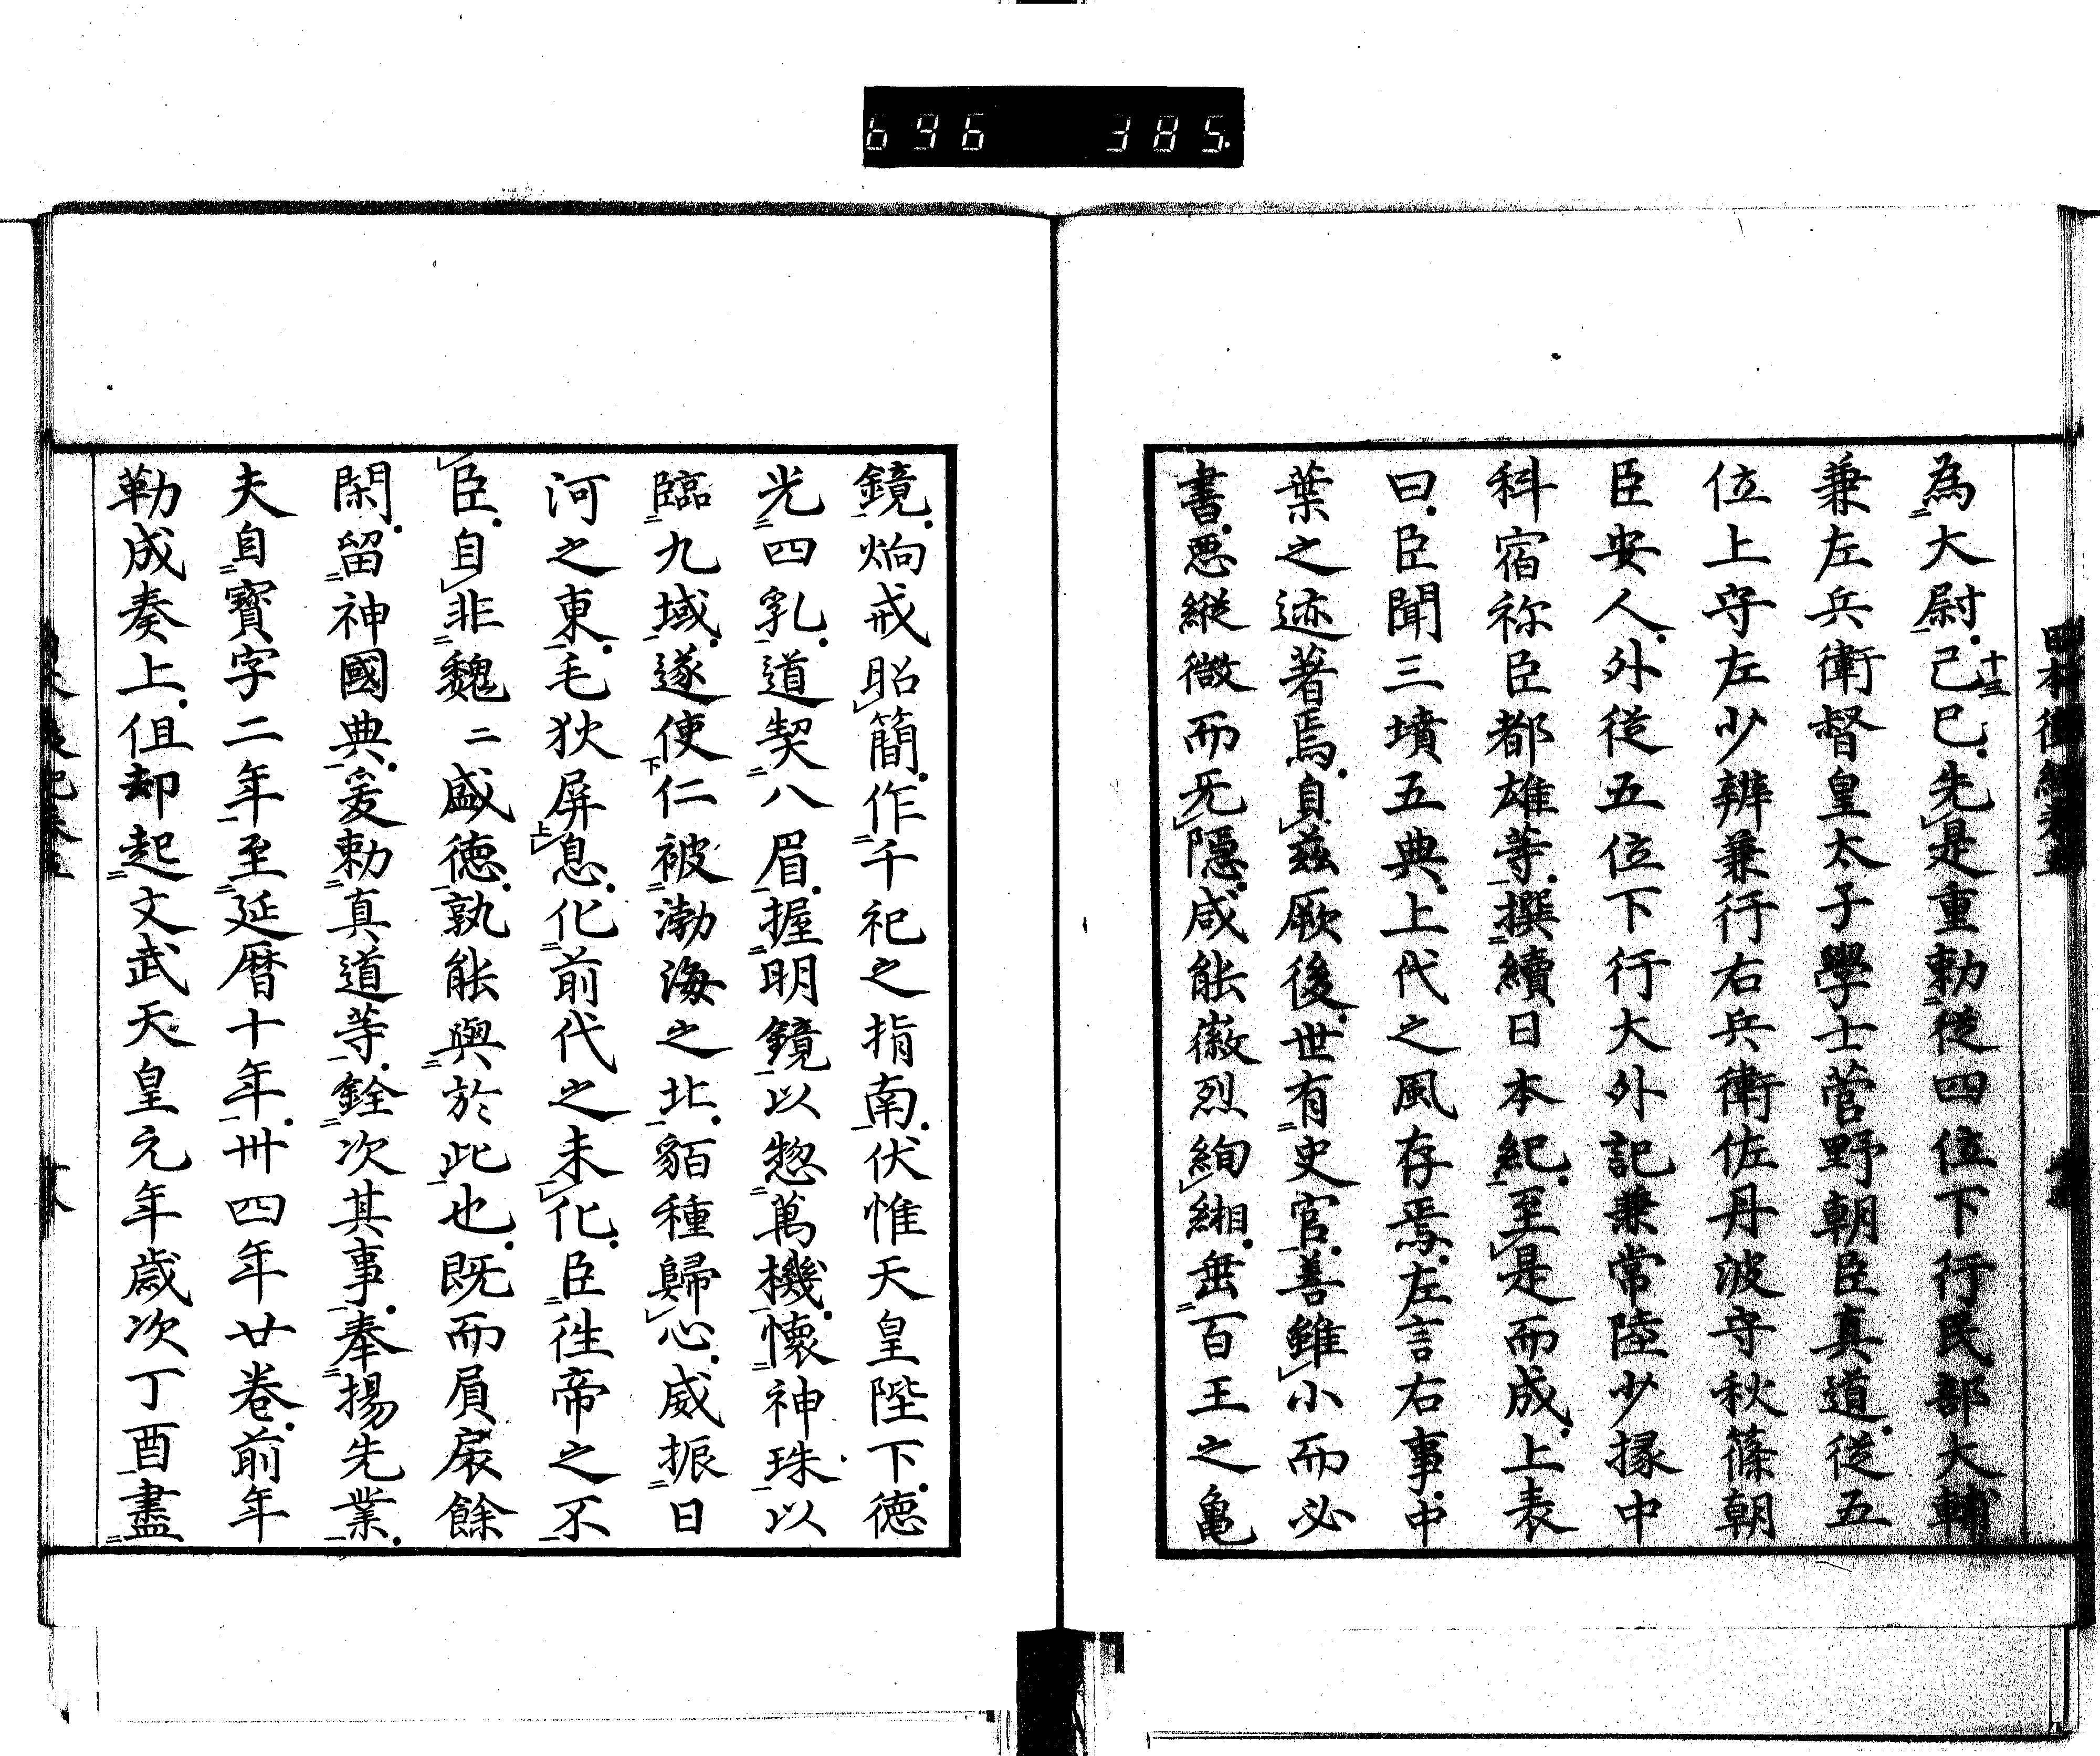 696 385
為大尉己巳先是重勅従四位下行民部大輔
十三
兼左兵衛督皇太子學士菅野朝臣真道従五
位上守左少辨兼行右兵衛佐丹波守秋篠朝
臣安人外従五位下行大外記兼常陸少掾中
科宿祢臣都雄等撰續日本紀至是而成上表
曰臣聞三墳五典上代之風存焉左言右事中
葉之迹著焉自茲厥後世有史官善雖小而必
書悪縦微而无隠咸能徽烈絢緗垂百王之亀
鏡炳戒昭簡作千祀之指南伏惟天皇陛下徳
光四乳道契八眉握明鏡以惣萬機懐神珠以
臨九域遂使仁被渤海之北貊種歸心威振日
河之東毛狄屏息化前代之未化臣徃帝之不
臣自非魏二盛徳孰能與於此也既而屓扆餘
閑留神國典爰勅真道等銓次其事奉揚先業
夫自寳字二年至延暦十年卅四年廿巻前年
勒成奏上但却起文武天皇元年歳次丁酉盡